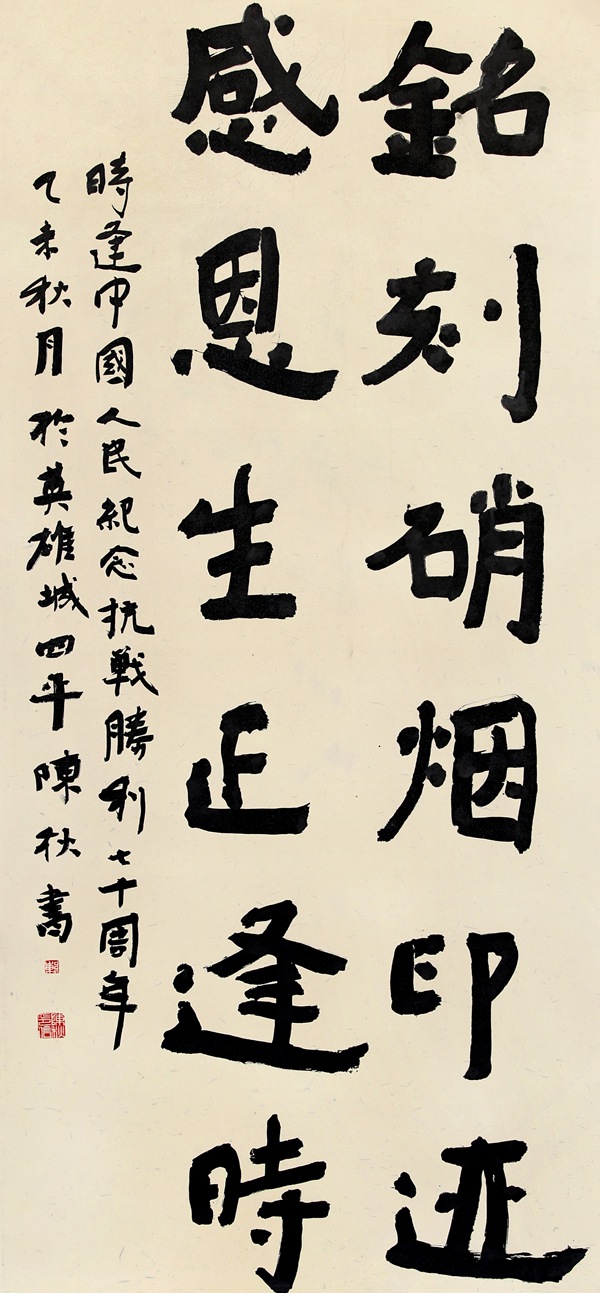 銘刻硝烟印迹
感恩生正逢時
時逢中國人民紀念抗戰勝利七十周年
乙未秋月於英雄城四平陳秋書